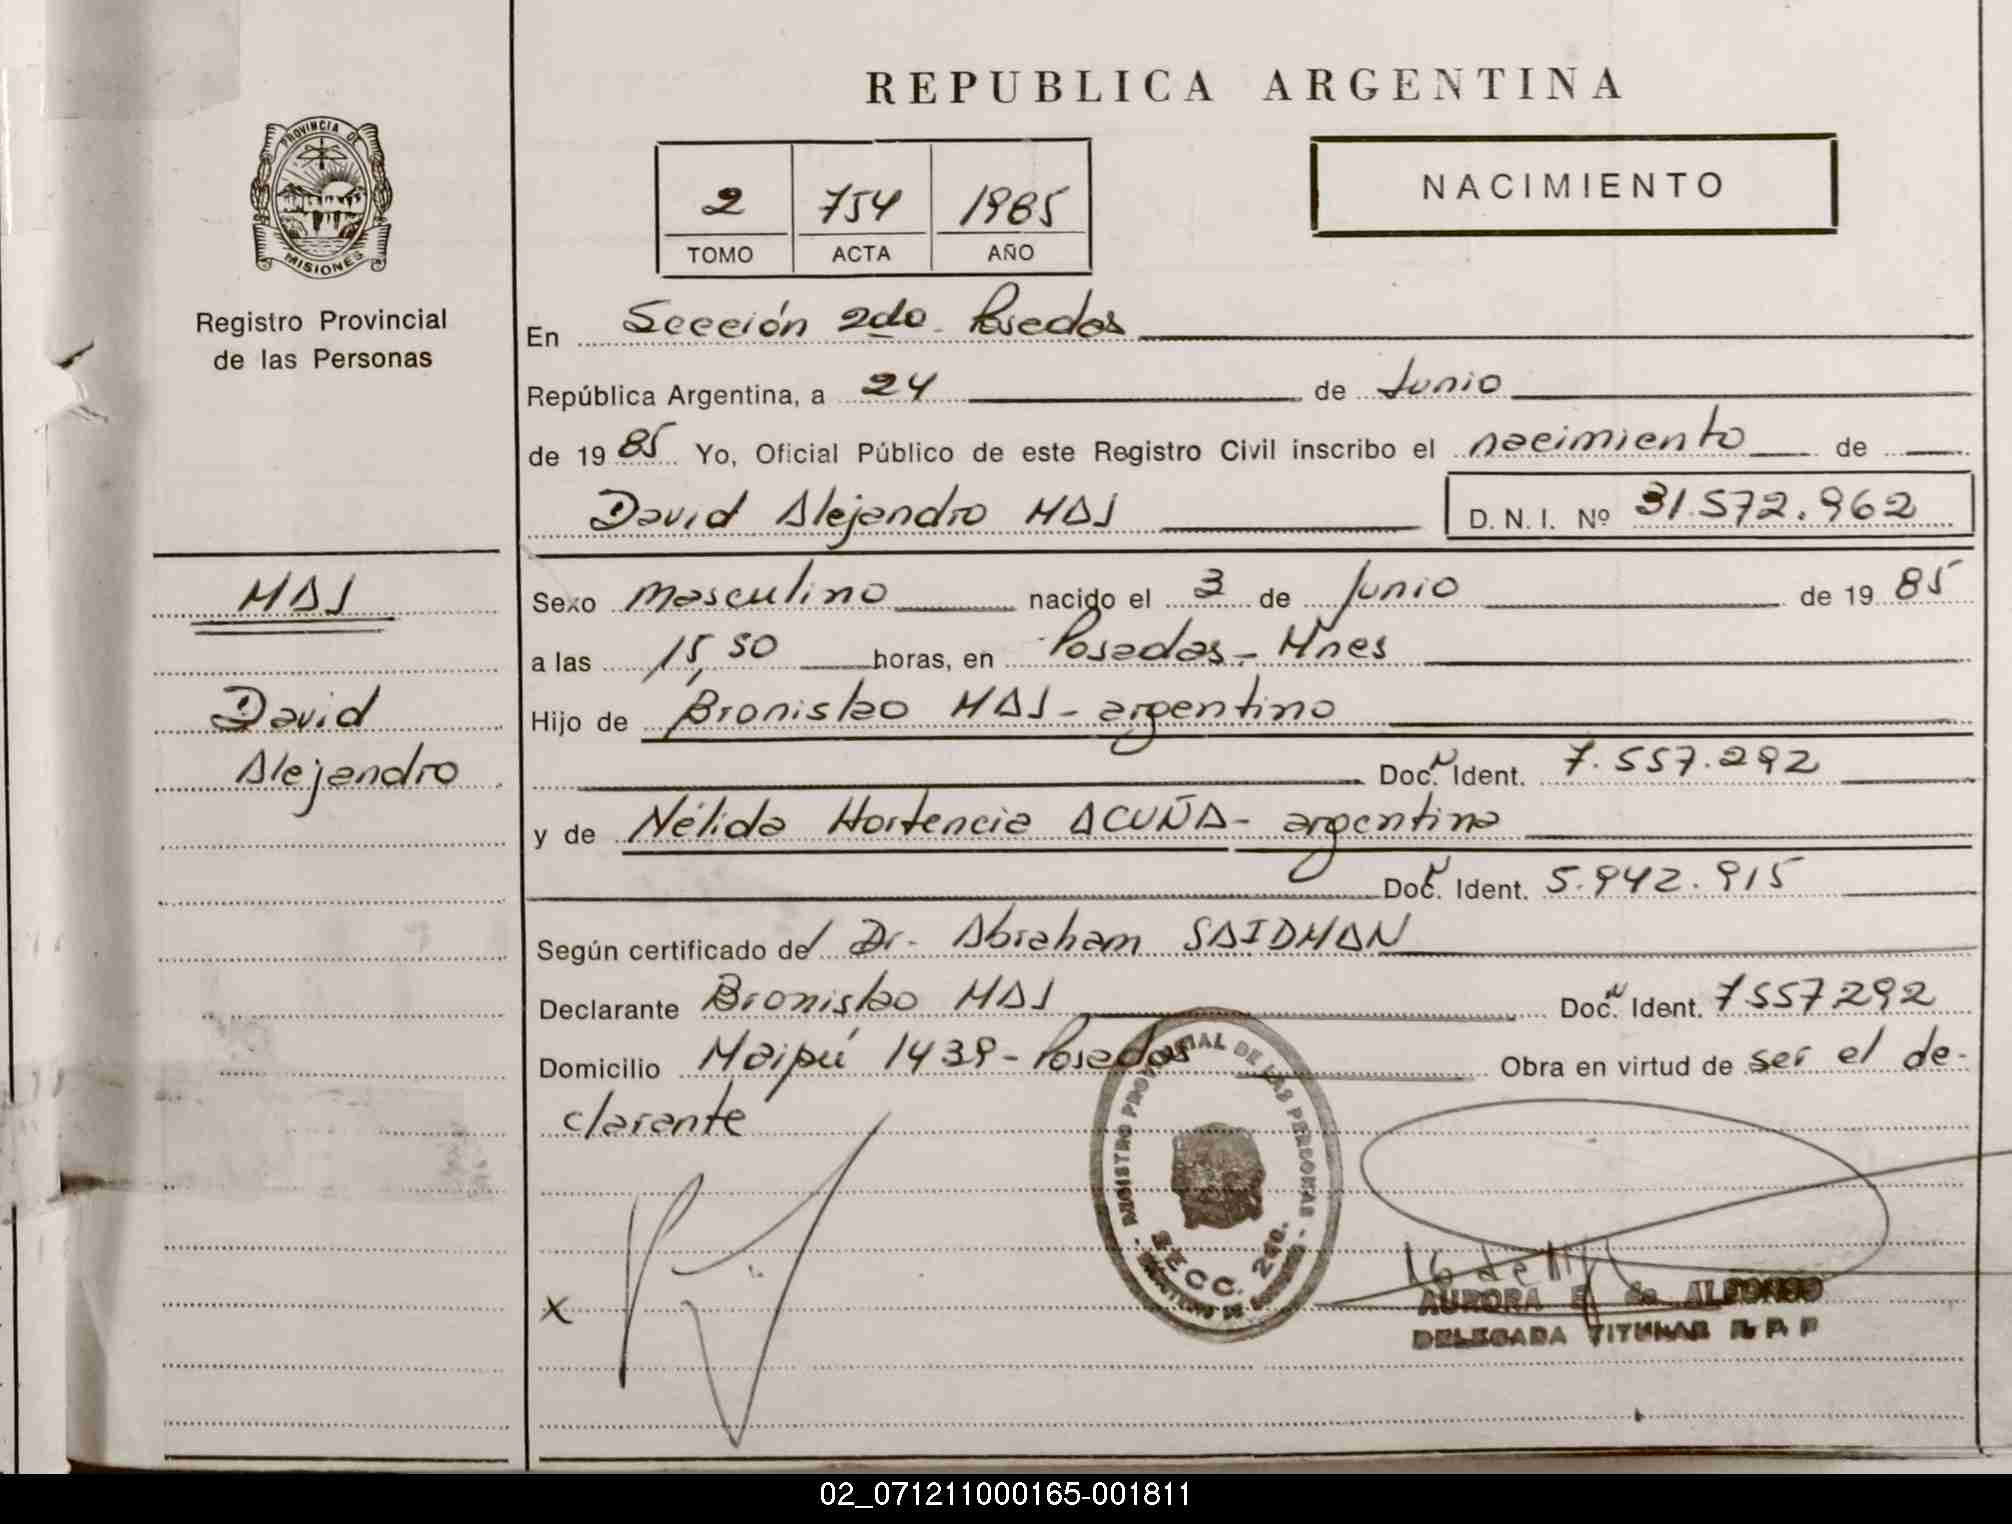 REPUBLICA ARGENTINA
PROVINCIA DE
MISIONES
Registro Provincial
de las Personas
2 754 1985
TOMO ACTA AÑO
NACIMIENTO
En Sección 2da. Posadas
República Argentina, a 24 de Junio
de 1985 Yo, Oficial Público de este Registro Civil inscribo el nacimiento de
David Alejandro MAS D. N. I. Nº 31.572.962
MAS
David
Alejandro
Sexo masculino nacido el 3 de Junio de 1985
a las 15,50 horas, en Posadas - Mnes
Hijo de Bronislao MAS - argentino
Doc. Ident. 7.557.292
y de Nélida Hortencia ACUÑA - argentina
Doc. Ident. 5.942.915
Según certificado de/ Dr. Abraham SAIDMAN
Declarante Bronislao MAS Doc. Ident. 7557292
Domicilio Maipú 1439 - Posadas Obra en virtud de ser el de-
clarante
REGISTRO PROVINCIAL DE LAS PERSONAS
SECC. 2da.
X
AURORA E. de ALFONSO
DELEGADA TITULAR R. P. P
02_071211000165-001811